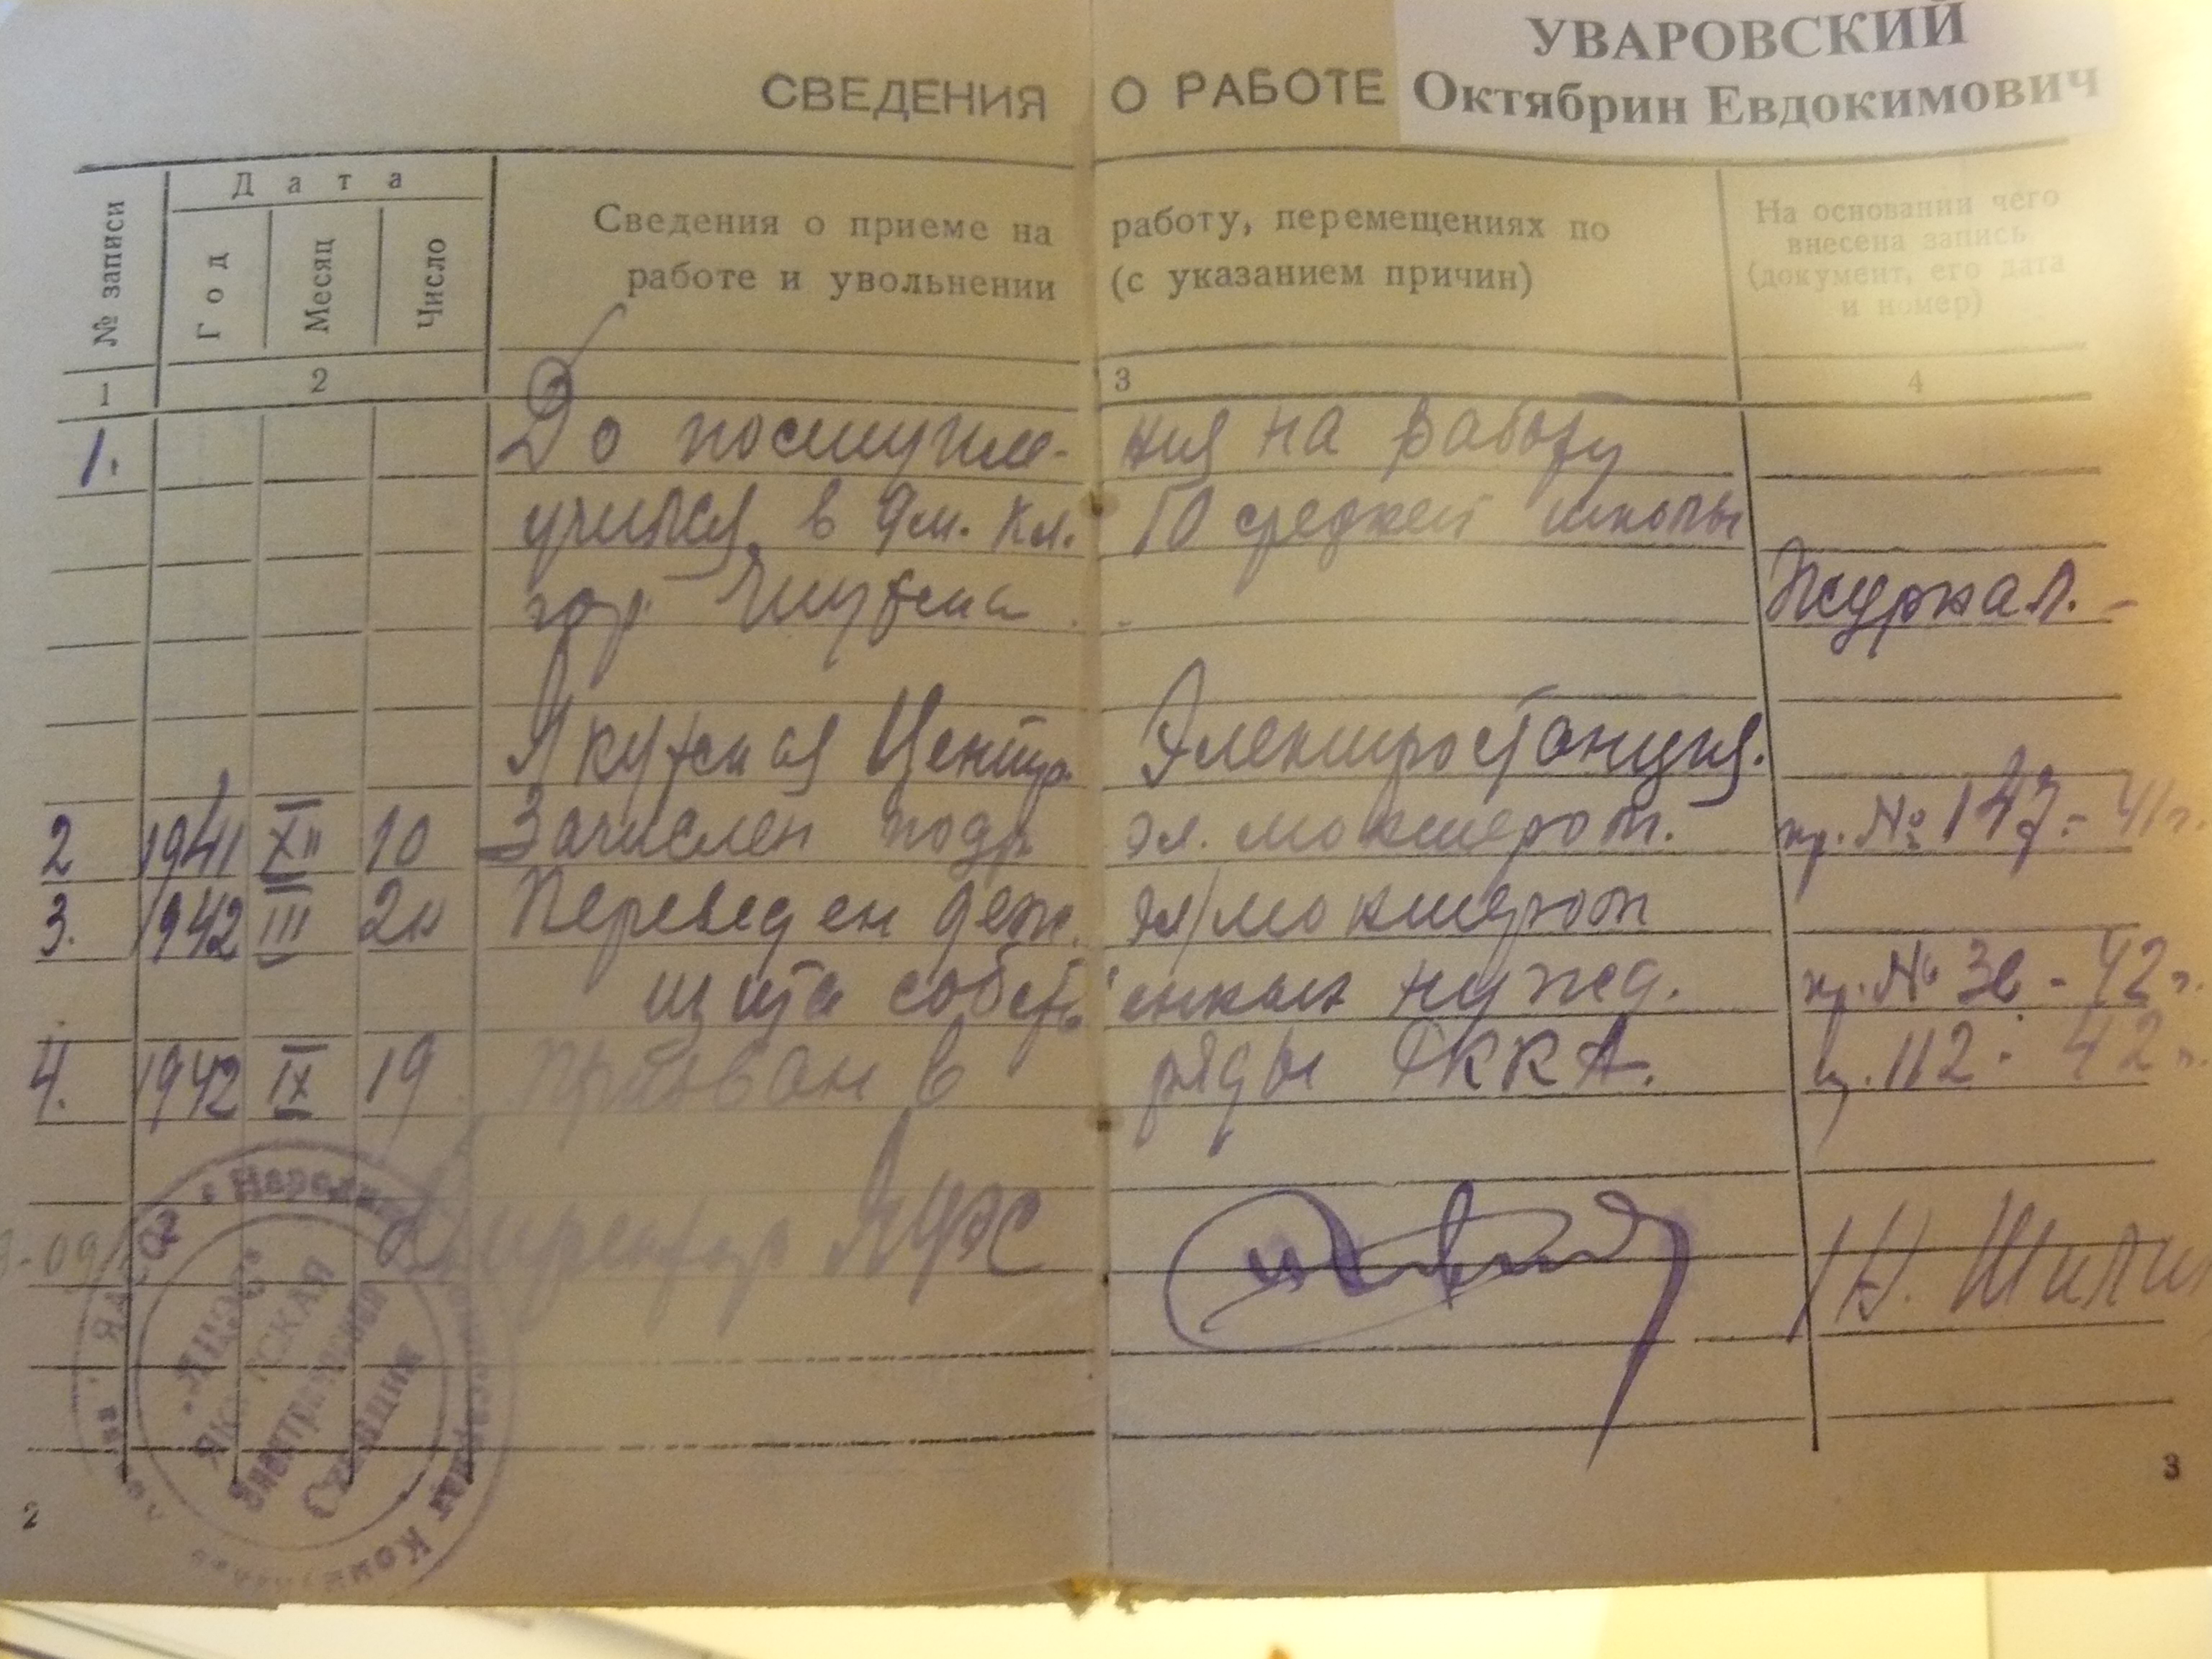 УВАРОВСКИЙ
СВЕДЕНИЯ О РАБОТЕ Октябрин Евдокимович
№ записи
Дата
Год
Месяц
Число
Сведения о приеме на работу, перемещениях по
работе и увольнении (с указанием причин)
На основании чего
внесена запись
(документ, его дата
и номер)
1 2 3 4
1. До поступле- ния на работу
учился в 9м. кл. 10 средней школы
гор Якутска Журнал. -
Якутская Центр. Электростанция.
2 1941 XII 10 Зачислен подр эл. монтером. пр. № 147 - 41г.
3. 1942 III 20 Переведен деж. эл/монтером
щита собств енных нужд. пр. № - 42г.
4. 1942 IX 19 Призван в ряды РККА. 112 - 42г.
Директор ЯЦЭС /Н. Шилин
"ЯЦЭС"
ЯКУТСКАЯ
Электрическая
Станция
2
3